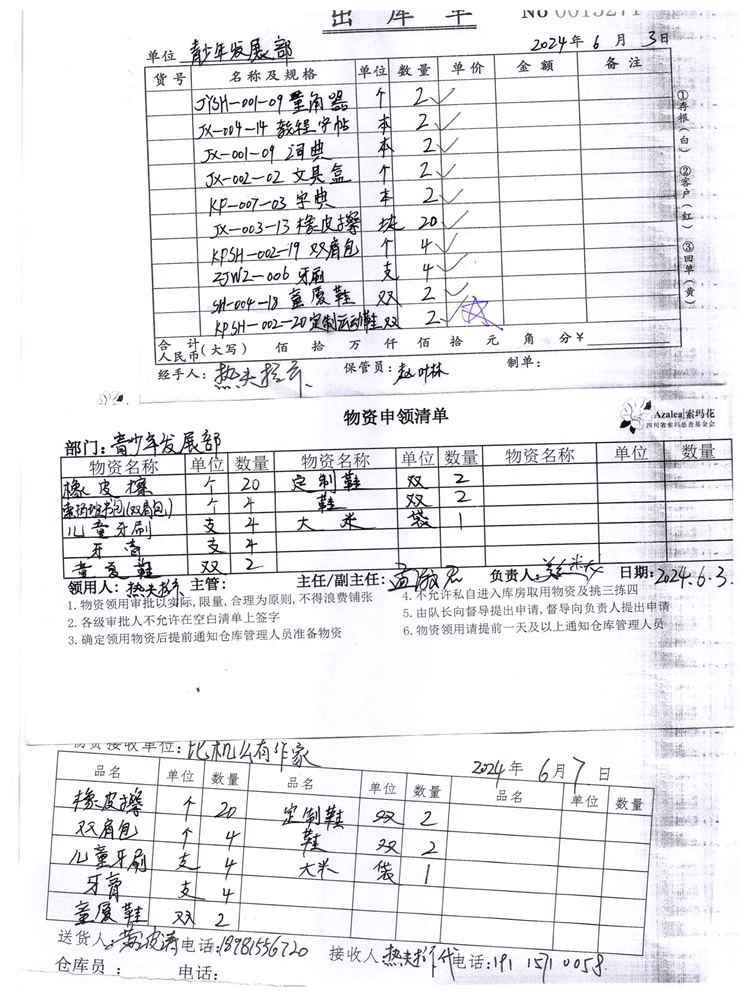 出 库 单 No 0015271
单位 青少年发展部 2024年 6 月 3日
货号 名称及规格 单位 数量 单价 金额 备注
JYSH-001-09 量角器 个 2
JX-004-14 教程字帖 本 2
JX-001-09 词典 本 2
JX-002-02 文具盒 个 2
KP-007-03 字典 本 2
JX-003-13 橡皮擦 块 20
KPSH-002-19 双肩包 个 4
ZJWZ-006 牙刷 支 4
SH-004-18 童皮鞋 双 2
KPSH-002-20 定制运动鞋 双 2
①存根(白) ②客户(红) ③回单(黄)
合计人民币(大写) 佰 拾 万 仟 佰 拾 元 角 分 ¥
经手人: 保管员: 赵叶林 制单:
物资申领清单
Azalea|索玛花
四川省索玛慈善基金会
部门: 青少年发展部
物资名称 单位 数量 物资名称 单位 数量 物资名称 单位 数量
橡皮擦 个 20 定制鞋 双 2
(双肩包) 个 4 鞋 双 2
儿童牙刷 支 4 大米 袋 1
牙膏 支 4
童皮鞋 双 2
领用人: 主管: 主任/副主任: 负责人: 日期: 2024.6.3.
1.物资领用审批以实际,限量,合理为原则,不得浪费铺张
4.不允许私自进入库房取用物资及挑三拣四
2.各级审批人不允许在空白清单上签字
5.由队长向督导提出申请,督导向负责人提出申请
3.确定领用物资后提前通知仓库管理人员准备物资
6.物资领用请提前一天及以上通知仓库管理人员
物资接收单位:
2024年 6月7日
品名 单位 数量 品名 单位 数量 品名 单位 数量
橡皮擦 个 20 定制鞋 双 2
双肩包 个 4 鞋 双 2
儿童牙刷 支 4 大米 袋 1
牙膏 支 4
童皮鞋 双 2
送货人: 电话: 18981556720 接收人: 电话: 191 1571 0058
仓库员: 电话: